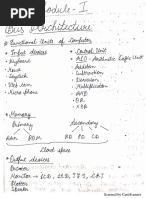 Module - I
Bus Architecture
Functional Units of Computer
• Input devices
• Keyboard
• Mouse
• Joystick
• Web cam
• Micro phone
• Control Unit
• ALU - Arithmetic Logic Unit
Addition
Subtraction
Division
Multiplication
AND
OR
XOR
• Memory
Primary
Secondary
RAM
ROM
HD
PD
CD
Cloud space
• Output devices
Printer
Monitor
Plotter
Scanned by CamScanner